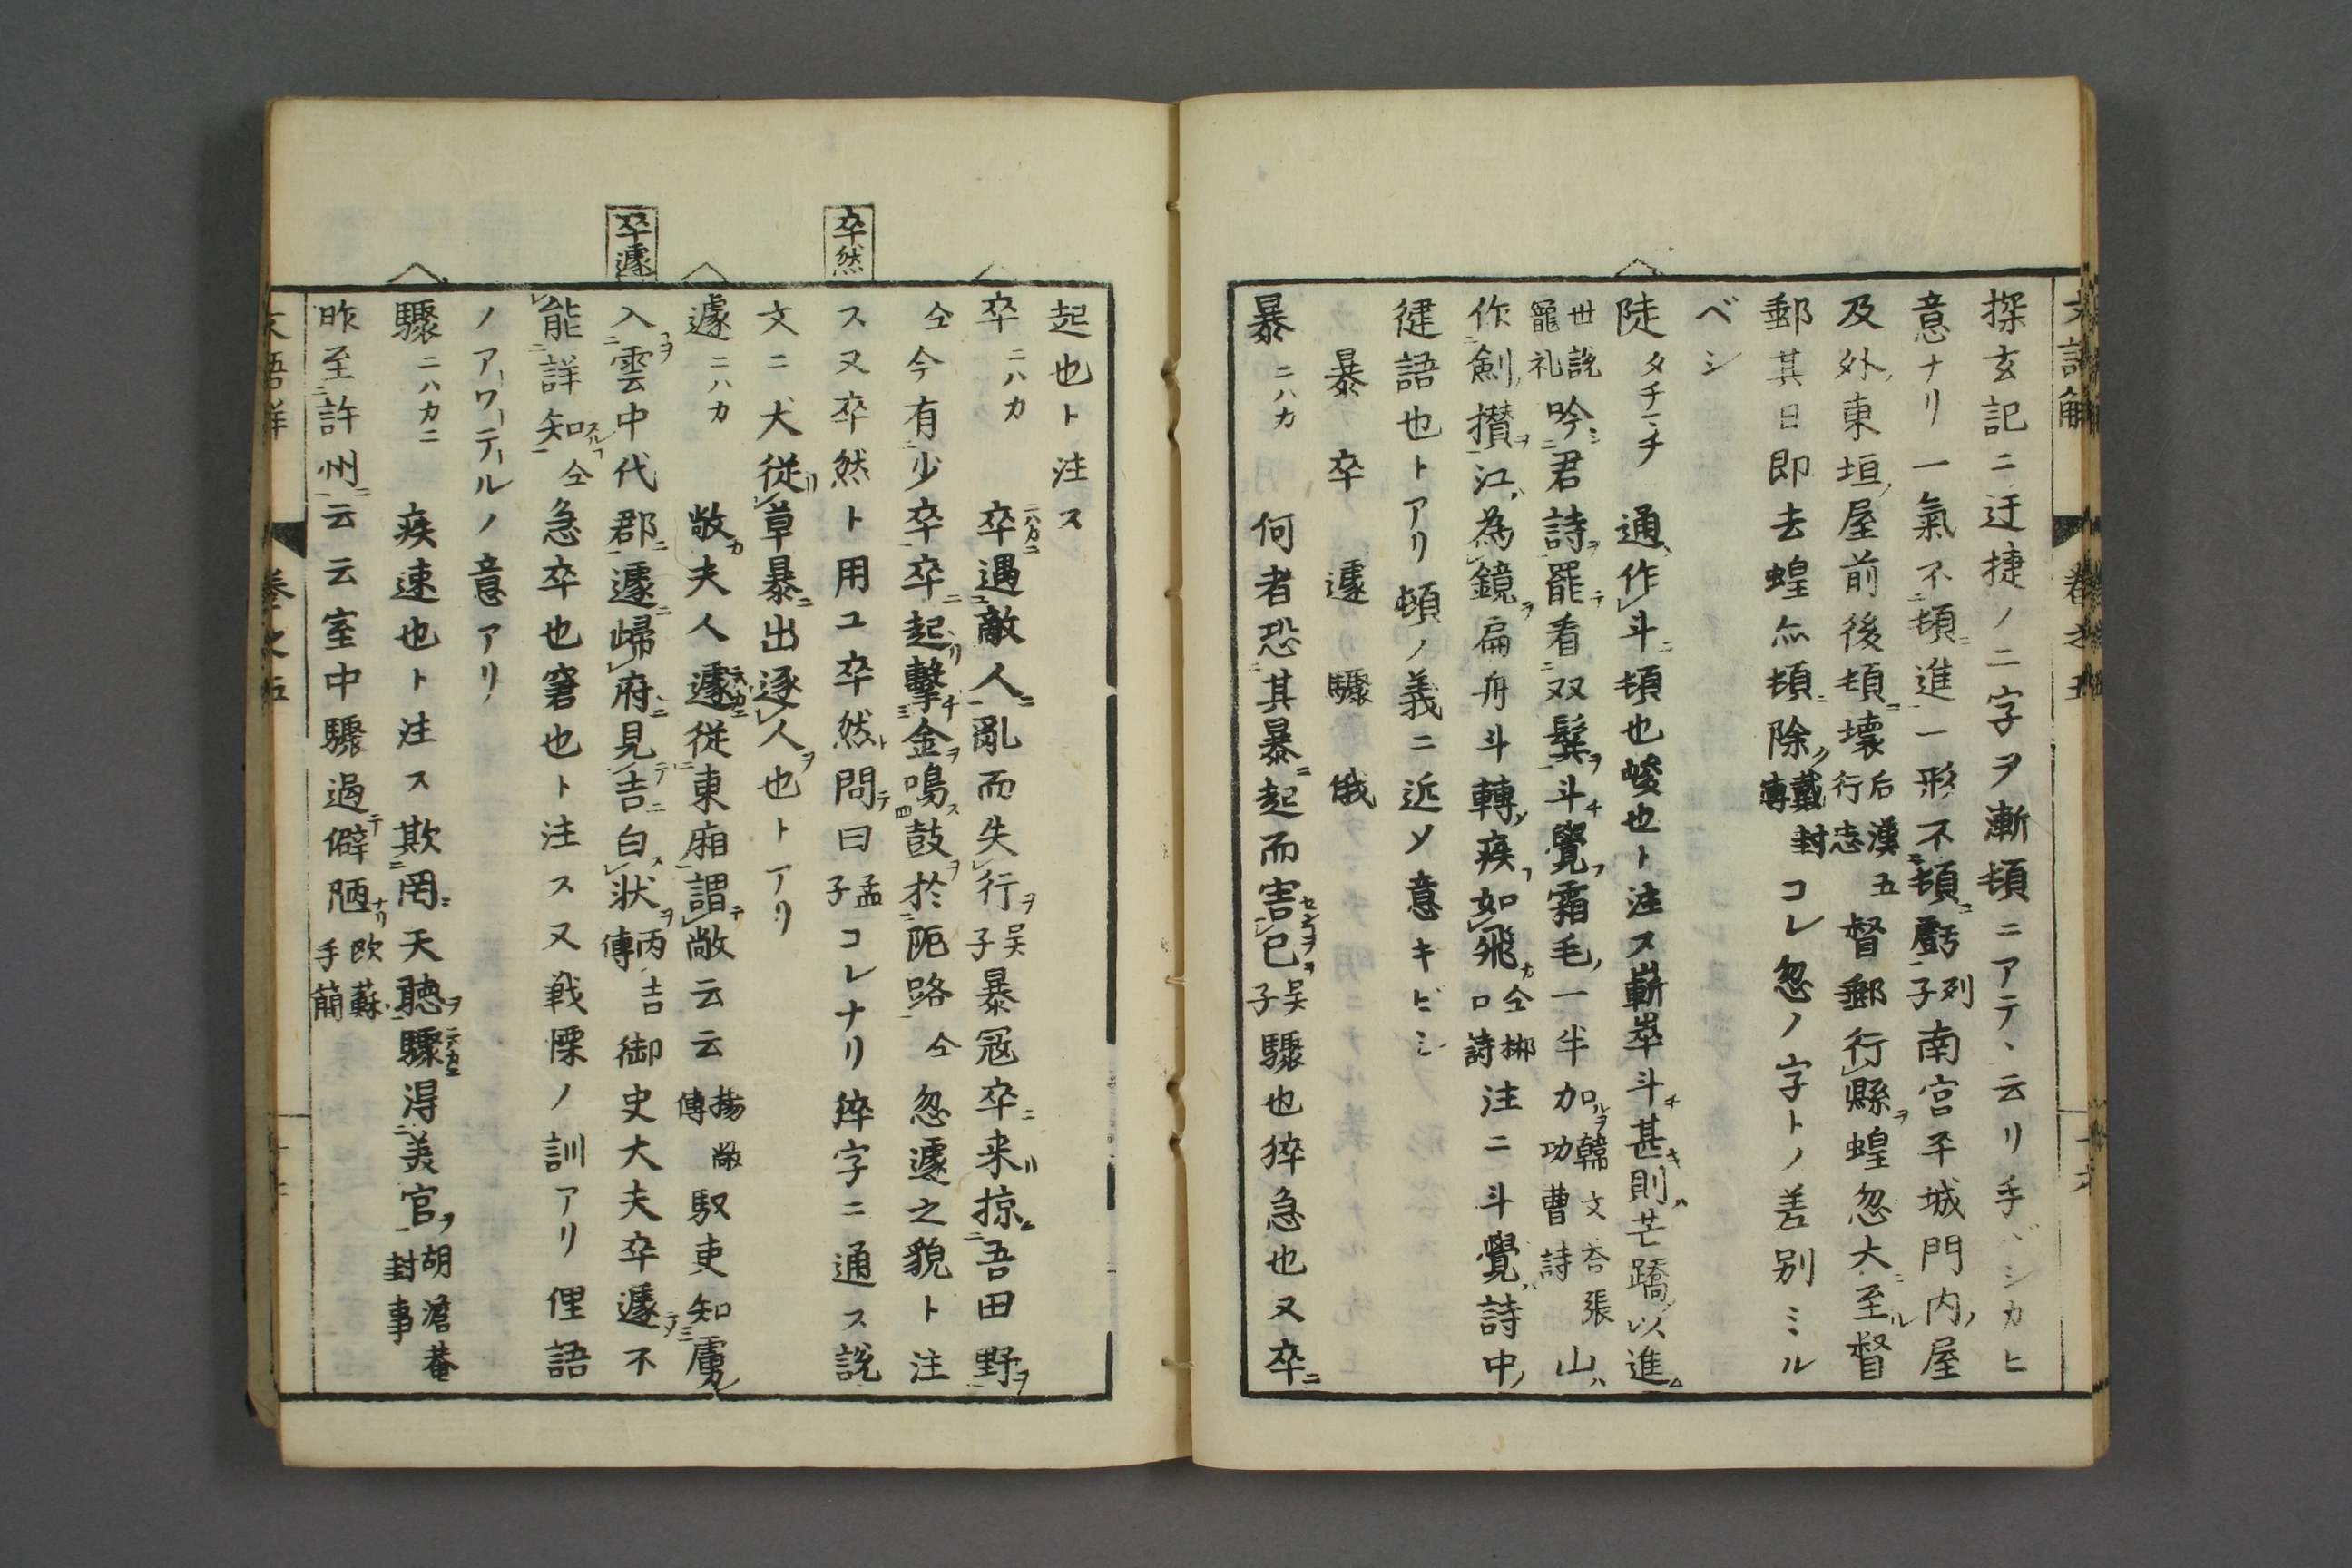 探玄記ニ迂捷ノ二字ヲ漸頓ニアテヽ云リ手バシカヒ
意ナリ一氣不頓進一形不頓虧列子南宮平城門内屋
及外東垣屋前後頓壞后漢五行志督郵行縣蝗忽大至督
郵其日即去蝗亦頓除戴封傳コレ忽ノ字トノ差别ミル
ベシ
陡タチマチ通作斗頓也峻也ト注ス嶄崒斗甚則芒蹻以進
世説寵礼吟君詩罷看双鬓斗覺霜毛一半加韓文荅張功曹詩山
作劍攅江為鏡扁舟斗轉疾如飛仝梆口詩注ニ斗覺詩中
徤語也トアリ頓ノ義ニ近ソ意キビシ
暴 卒 遽 驟 俄
暴ニハカ 何者恐其暴起而害已呉子驟也猝急也又卒
起也ト注ス
卒ニハカ 卒遇敵人亂而失行呉子暴冦卒来掠吾田野
仝今有少卒卒起擊金鳴鼓於阨路仝忽遽之貌ト注
ス又卒然ト用ユ卒然問曰孟子コレナリ猝字ニ通ス説
文ニ犬従草暴出逐人也トアリ
遽ニハカ 敞夫人遽従東廂謂敞云云揚敞傳馭吏知虜
入雲中代郡遽歸府見吉白状丙吉傳御史大夫卒遽不
能詳知仝急卒也窘也ト注ス又戦慄ノ訓アリ俚語
ノアワテルノ意アリ
驟ニハカニ 疾速也ト注ス欺罔天聽驟淂美官胡澹菴封事
昨至許州云云室中驟過僻陋欧蘇手簡
卒然
卒遽
文語解 卷之五